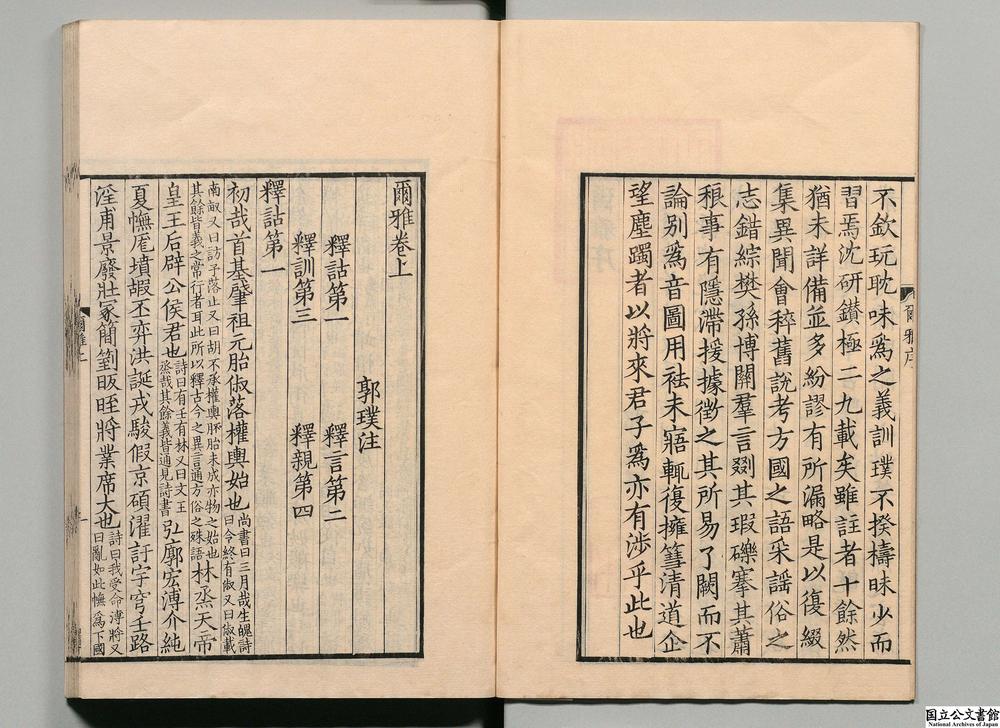 不欽玩耽味爲之義訓璞不揆檮昧少而
習焉沈研鑚極二九載矣雖註者十餘然
猶未詳備並多紛謬有所漏略是以復綴
集異聞會稡舊說考方國之語采謡俗之
志錯綜樊孫博關羣言剟其瑕礫搴其蕭
稂事有隱滯援據徵之其所易了闕而不
論别爲音圖用袪未寤輒復擁篲清道企
望塵躅者以將來君子爲亦有涉乎此也
爾雅序
爾雅卷上
郭璞注
釋詁第一 釋言第二
釋訓第三 釋親第四
釋詁第一
初哉首基肇祖元胎俶落權輿始也尚書曰三月哉生魄詩曰令終有俶又曰俶載
南畝又曰訪予落止又曰胡不承權輿胚胎未成亦物之始也其餘皆義之常行者耳此所以釋古今之異言通方俗之殊語林烝天帝
皇王后辟公侯君也詩曰有壬有林又曰文王烝哉其餘義皆通見詩書弘廓宏溥介純
夏幠厖墳嘏丕弈洪誕戎駿假京碩濯訏宇穹壬路
淫甫景廢壯冢簡箌昄晊將業席大也詩曰我受命溥將又曰亂如此幠爲下國
爾雅上
国立公文書館
National Archives of Japan